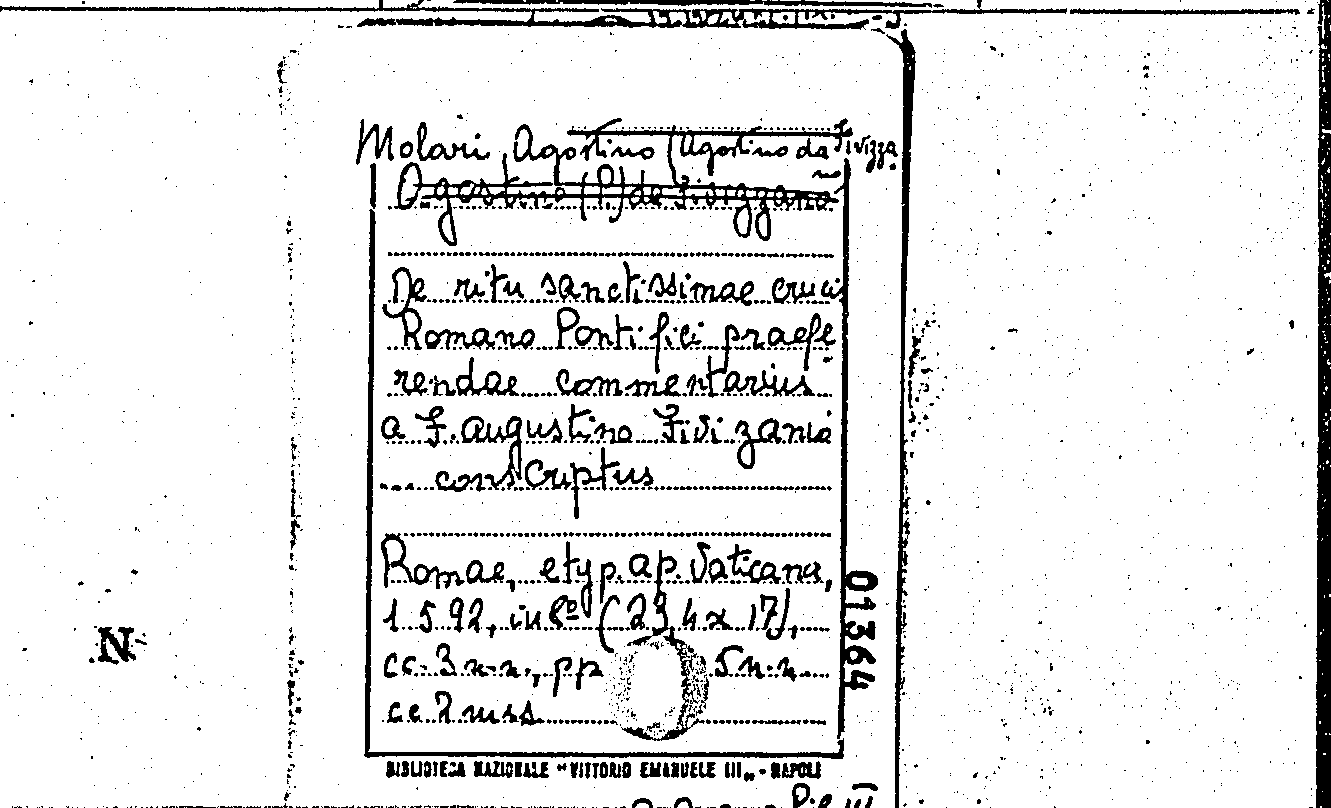 Molari, Agostino (Agostino da Fivizza
no
Agostino (P.) da Fivizzano
De ritu sanctissimae crucis
Romano Pontifici praefe
rendae commentarius
a F. Augustino Fivizanio
... conscriptus
Romae, e typ. ap. Vaticana,
1592, in 8º (23,4 x 17),
cc. 3 n.n., pp 5 n.n.
cc 2 mss
01364
N
BIBLIOTECA NAZIONALE "VITTORIO EMANUELE III" - NAPOLI